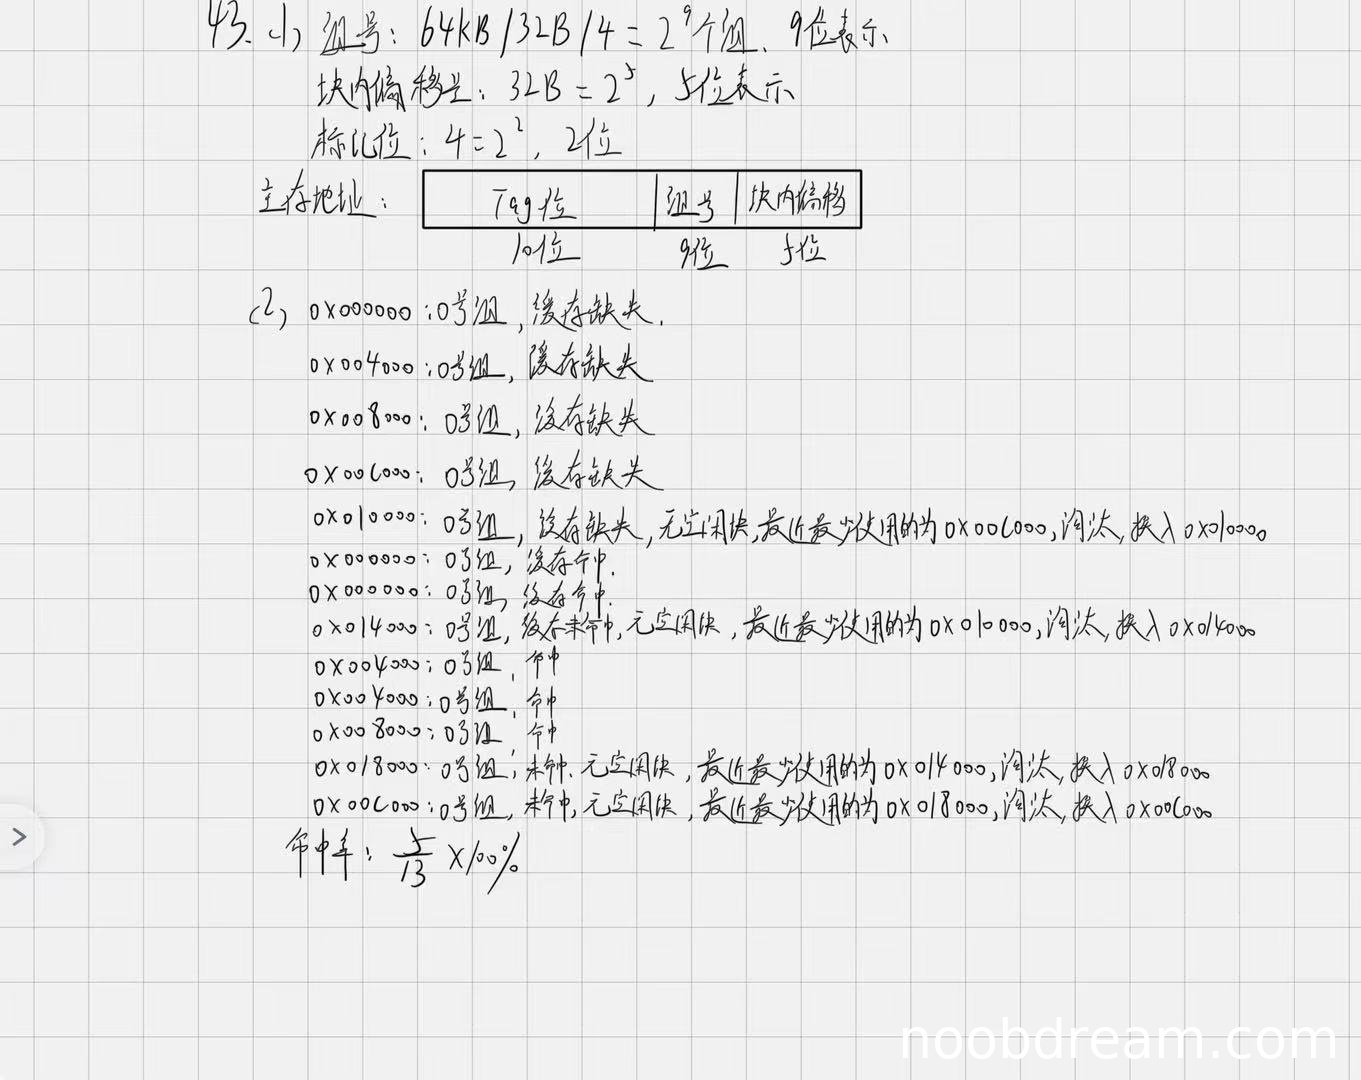 43. (1) 组号: 64KB/32B/4=2⁹个组、9位表示
块内偏移量: 32B=2⁵, 5位表示
标记位: 4=2², 2位
主存地址: Tag位 组号 块内偏移
10位 9位 5位
(2) 0X000000:0号组,缓存缺失.
0X004000:0号组,缓存缺失
0X008000:0号组,缓存缺失
0X00C000:0号组,缓存缺失
0X010000:0号组,缓存缺失,无空闲块,最近最少使用的为0X00C000,淘汰,换入0X010000
0X000000:0号组,缓存命中.
0X000000:0号组,缓存命中.
0X014000:0号组,缓存未命中,无空闲块,最近最少使用的为0X010000,淘汰,换入0X014000
0X004000:0号组,命中
0X004000:0号组,命中
0X008000:0号组,命中
0X018000:0号组,未命中.无空闲块,最近最少使用的为0X014000,淘汰,换入0X018000
0X00C000:0号组,未命中,无空闲块,最近最少使用的为0X018000,淘汰,换入0X00C000
命中率: 5/13 X100%
noobdream.com